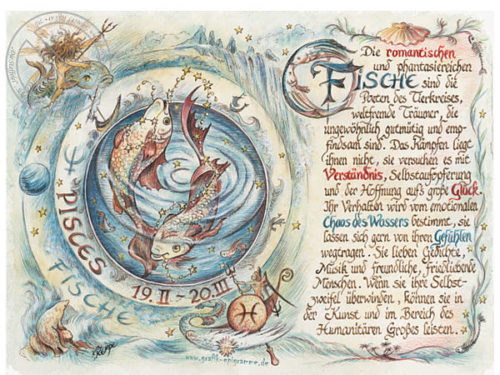 Die romantischen
und phantasiereichen
FISCHE sind die
Poeten des Tierkreises,
weltfremde Träumer, die
ungewöhnlich gutmütig und emp-
findsam sind. Das Kämpfen liegt
ihnen nicht, sie versuchen es mit
Verständnis, Selbstaufopferung
und der Hoffnung aufs große Glück.
Ihr Verhalten wird vom emotionalen
Chaos des Wassers bestimmt, sie
lassen sich gern von ihren Gefühlen
wegtragen. Sie lieben Gedichte,
Musik und freundliche, friedliebende
Menschen. Wenn sie ihre Selbst-
zweifel überwinden, können sie in
der Kunst und im Bereich des
Humanitären Großes leisten.
PISCES
FISCHE
19. II - 20. III
www.grafik-epigramme.de